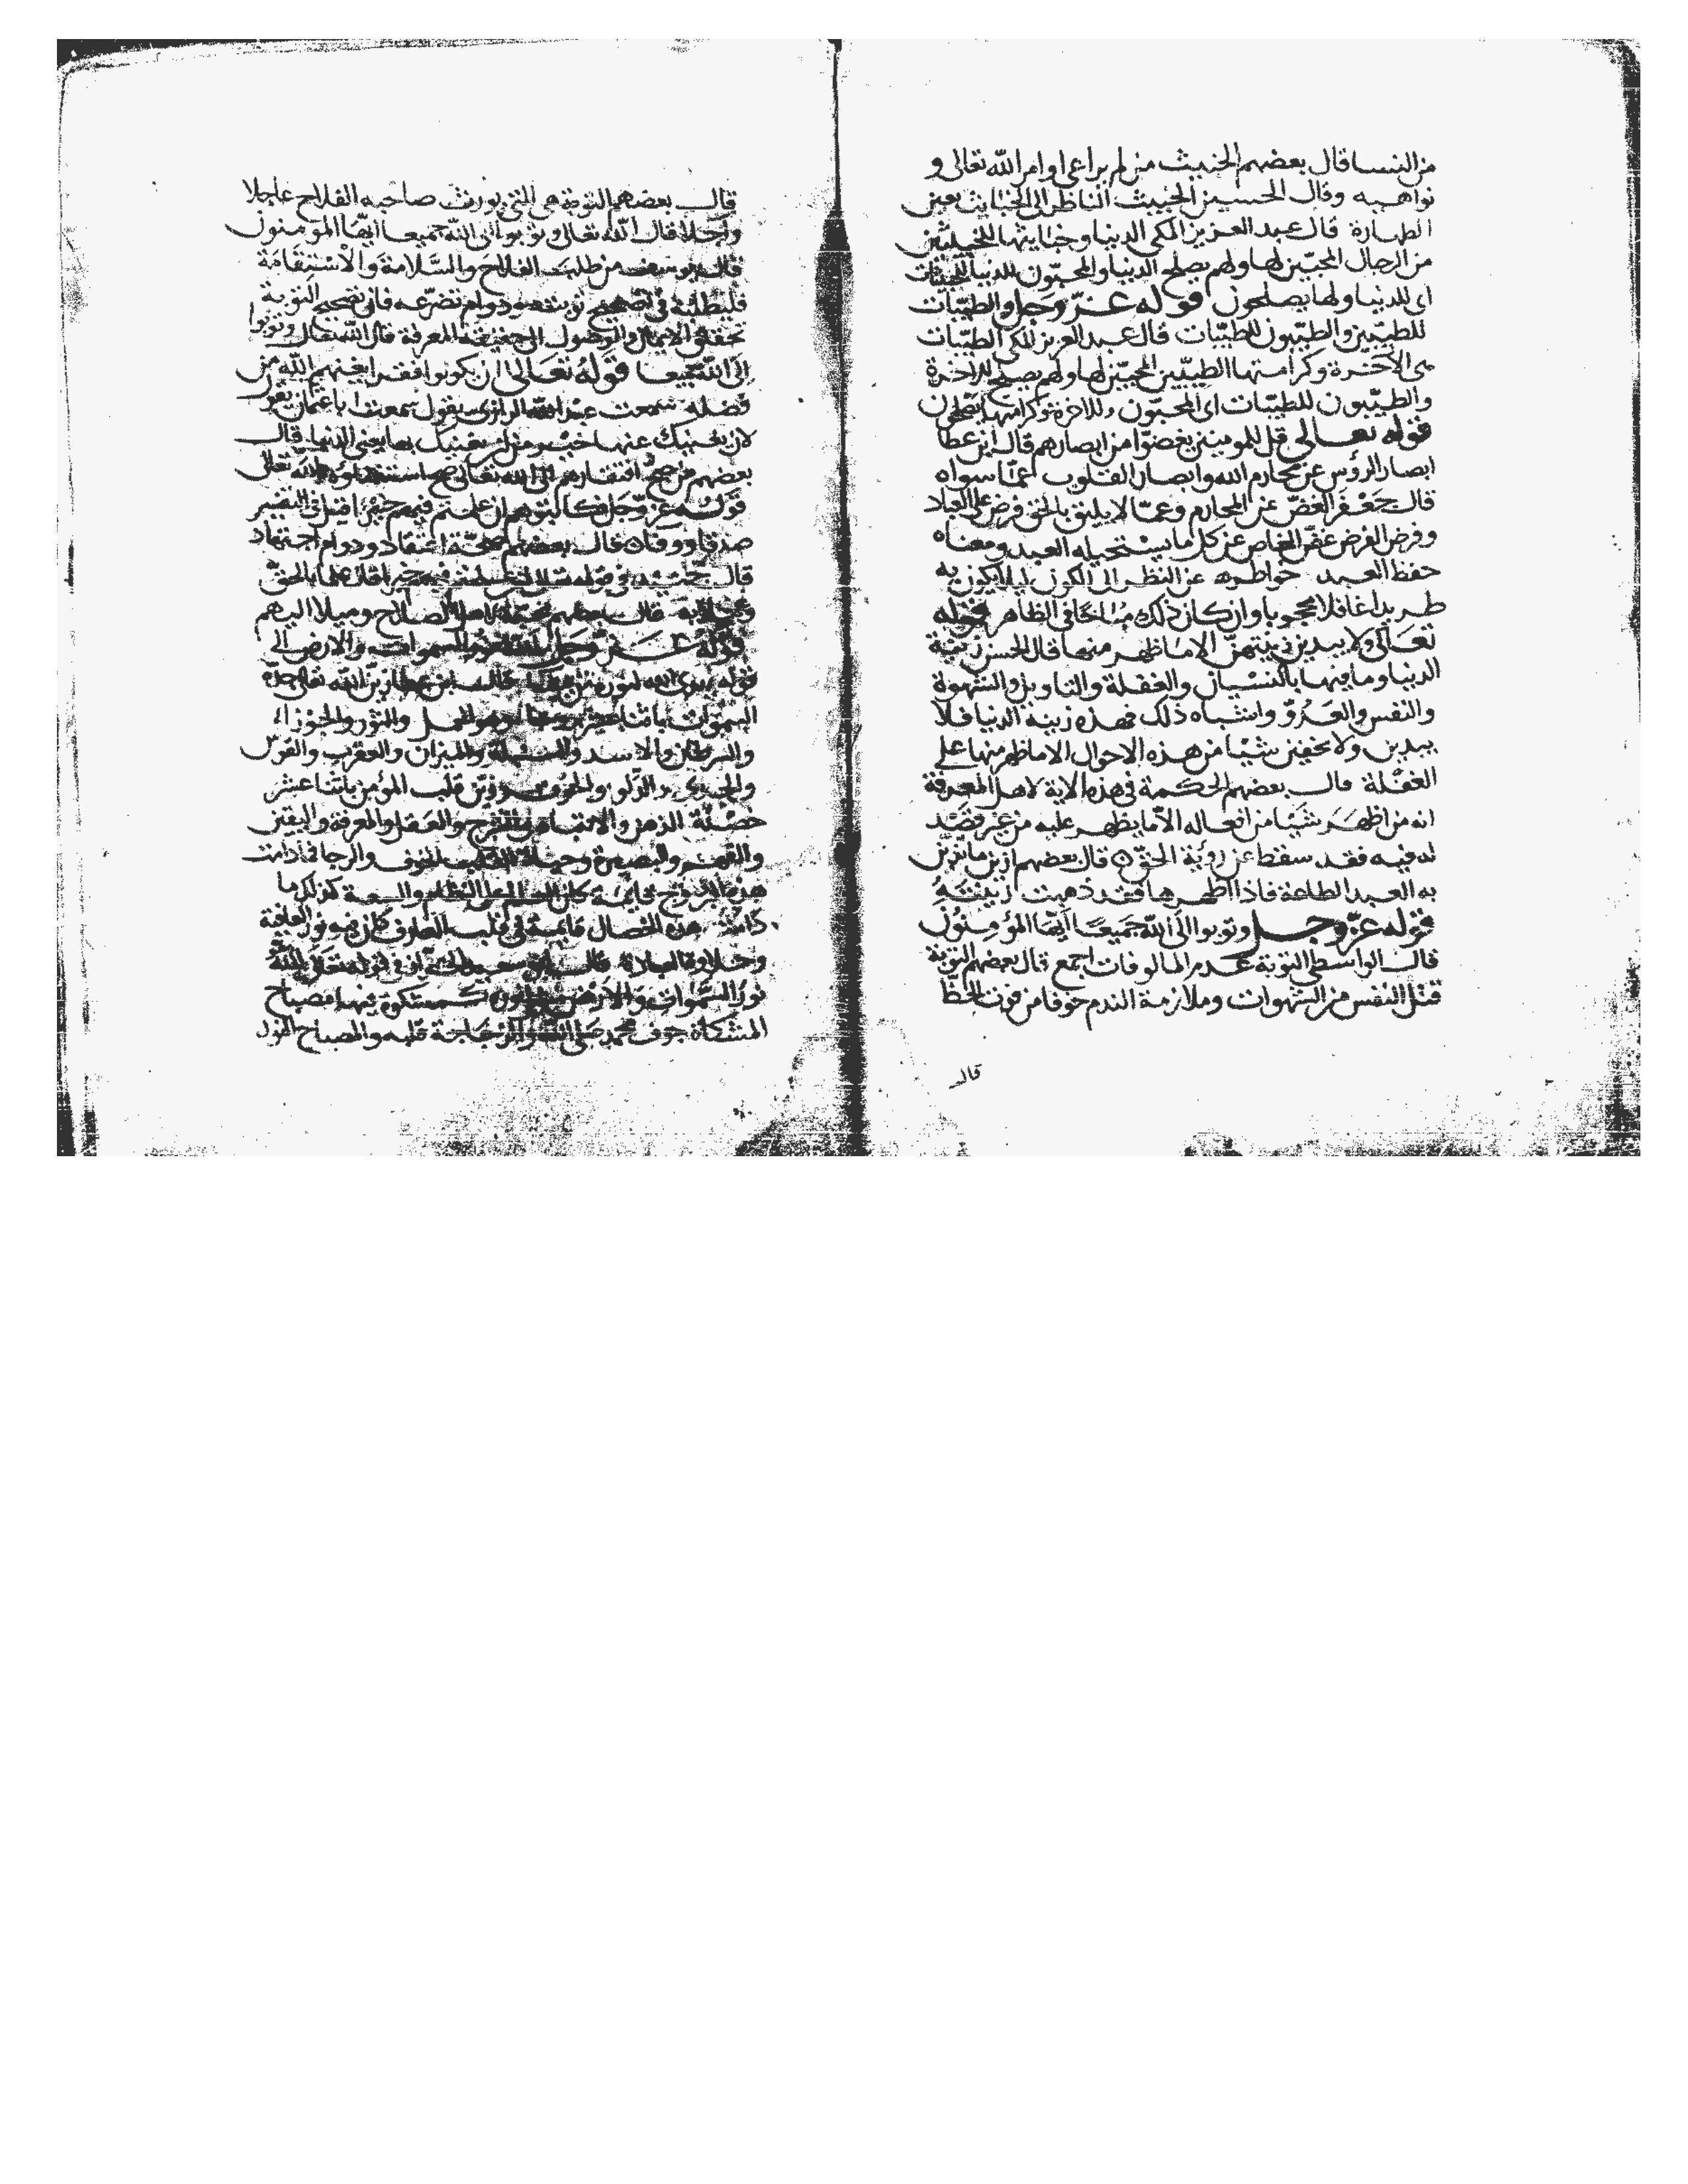 من النسا قال بعضهم الخبيث من لم يراعى اوامر الله تعالى و
نواهيه وقال الحسين الخبيث الناظر الى الخبايث بعين
الطهارة قال عبد العزيز المكى الدنيا وخباينها للخبيثين
من الرجال المحبّين لها ولهم يصلح الدنيا والمحبّون للدنيا للخبيثات
اى للدنيا ولها يصلحون قوله عزّ وجل والطيّبات
للطيّبين والطيّبون للطيّبات قال عبد العزيز المكى الطيّبات
هى الآخرة وكرامتها الطيّبين المحبّين لها ولهم يصلح الاخرة
والطيّبون للطيّبات اى المحبّون وللاخرة وكرامتها يصلحون
قوله تعالى قل للمومنين يغضوّا من ابصارهم قال ابن عطا
ابصار الرؤس عن محارم الله وابصار القلوب عمّا سواه
قال جعفر الغضّ عن المحارم وعمّا لا يليق بالحق فرض على العباد
وفرض الفرض غضّ الخاص عن كل ما يستحيله العبد ومعناه
حفظ العبد خواطره عن النظر الى الكون ليلا يكون به
طريدا غافلا محجوبا وان كان ذلك مباحًا فى الظاهر قوله
تعالى ولا يبدين زينتهنّ الا ما ظهر منها قال الحسن زينة
الدنيا وما فيها بالنسيان والغفلة والتاويل والشهوة
والنفس والعدوّ واشباه ذلك فهذه زينة الدنيا فلا
يبدين ولا يخفين شيًا من هذه الاحوال الا ما ظهر منها على
الغفلة قال بعضهم الحكمة فى هذه الاية لاهل المعرفة
انه من اظهر شيًا من افعاله الّا ما يظهر عليه من غير قصد
له فيه فقد سقط عن رؤية الحقّ قال بعضهم ازين ما تزيّن
به العبد الطاعة فاذا اظهرها فقد ذهبت زينته
قوله عزّ وجل وتوبوا الى الله جميعًا ايّها المؤمنون
قال الواسطى التوبة عدم المالوفات اجمع قال بعضهم التوبة
قتل النفس من الشهوات وملازمة الندم خوفا من فوت الحظّ
قال
قال بعضهم التوبة هى التى يورث صاحبه الفلاح عاجلا
وآجلا قال الله تعالى وتوبوا الى الله جميعا ايّها المؤمنون
قال يوسف من طلب الفلاح والسّلامة والاستقامة
فليطلبه فى تصحيح توبته ودوام تضرّعه فان تصحيح التوبة
تحقيق الايمان والوصول الى حقيقة المعرفة قال الله تعالى وتوبوا
الى الله جميعا قوله تعالى ان يكونوا فقرا يغنهم الله من
فضله سمعت عبد الله الرازى يقول سمعت ابا عثمان يقول
لان يغنيك عنها خير من ان يغنيك بها يعنى الدنيا قال
بعضهم من صحّ افتقاره الى الله تعالى صح استغناؤه بالله تعالى
قوله عزّ وجل فكاتبوهم ان علمتم فيهم خيرًا قيل فى التفسير
صدقا ووفاء قال بعضهم صحّة اعتقاد ودوام اجتهاد
قال جنيد فى قوله ان علمتم فيهم خيرا قال علما بالحقّ
وعملا به قال بعضهم محبّة لاهل الصلاح وميلا اليهم
قوله عزّ وجل الله نور السموات والارض الى
قوله يهدى الله لنوره من يشا قال ابن عطا زيّن الله تعالى جلّه
السموات باثنا عشر برجا وهو الحمل والثور والجوزاء
والسرطان والاسد والسنبلة والميزان والعقرب والقوس
والجدى والدّلو والحوت وزيّن قلب المؤمن باثنا عشر
خصلة الذهن والانتباه والشرح والعقل والمعرفة واليقين
والفهم والبصيرة وحياة القلب والخوف والرجا فما دامت
هذه البروج قايمة كان العالم على النظام والسعة كذلك ما
دامت هذه الخصال قايمة فى قلب العارف كان فيه نور العافية
وحلاوة العبادة قال ابو سعيد الخرّاز فى قوله تعالى الله
نور السموات والارض مثل نوره كمشكوة فيها مصباح
المشكاة جوف محمد صلى الله والزجاجة قلبه والمصباح النور